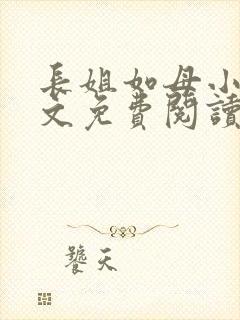 長姐如母小
文免費閱讀
饕天